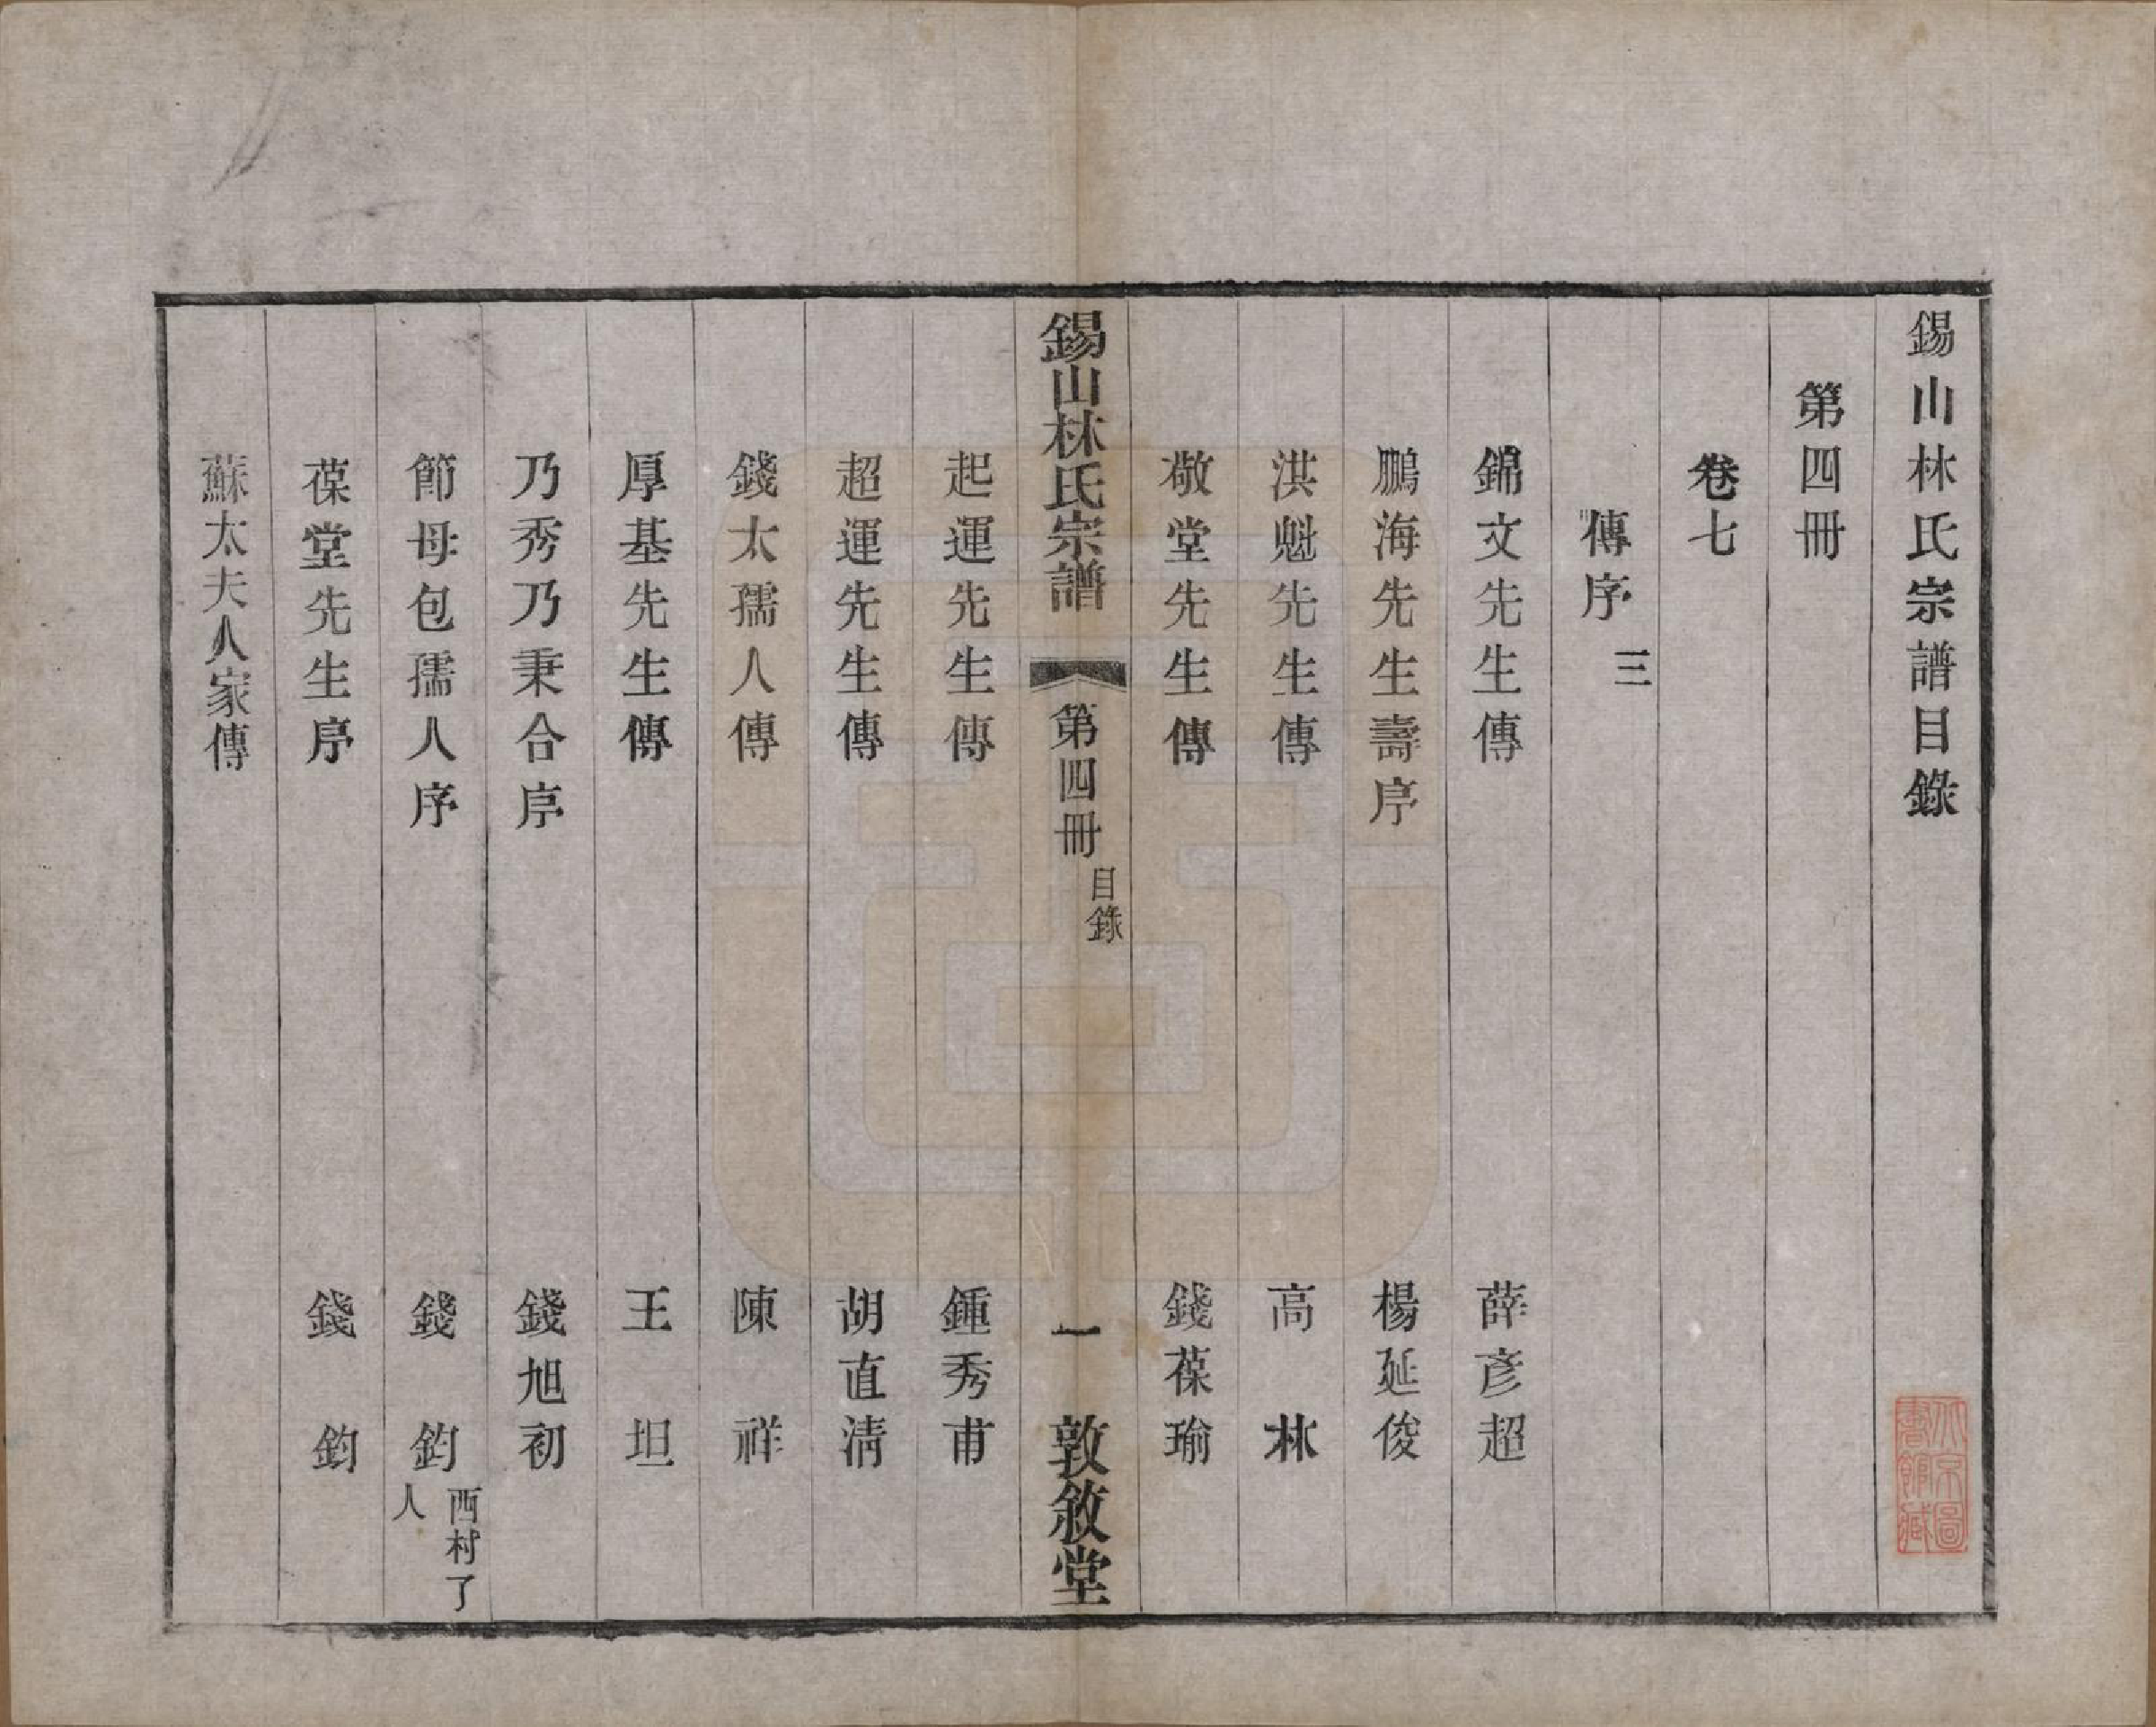 錫山林氏宗譜目錄
第四冊
卷七
傳序三
錦文先生傳 薛彥超
鵬海先生壽序 楊延俊
洪魁先生傳 高林
敬堂先生傳 錢葆瑜
錫山林氏宗譜 第四冊 目錄 一 敦敘堂
起運先生傳 鍾秀甫
超運先生傳 胡直清
錢太孺人傳 陳祥
厚基先生傳 王坦
乃秀乃秉合序 錢旭初
節母包孺人序 錢鈞 西村了人
葆堂先生序 錢鈞
蘇太夫人家傳